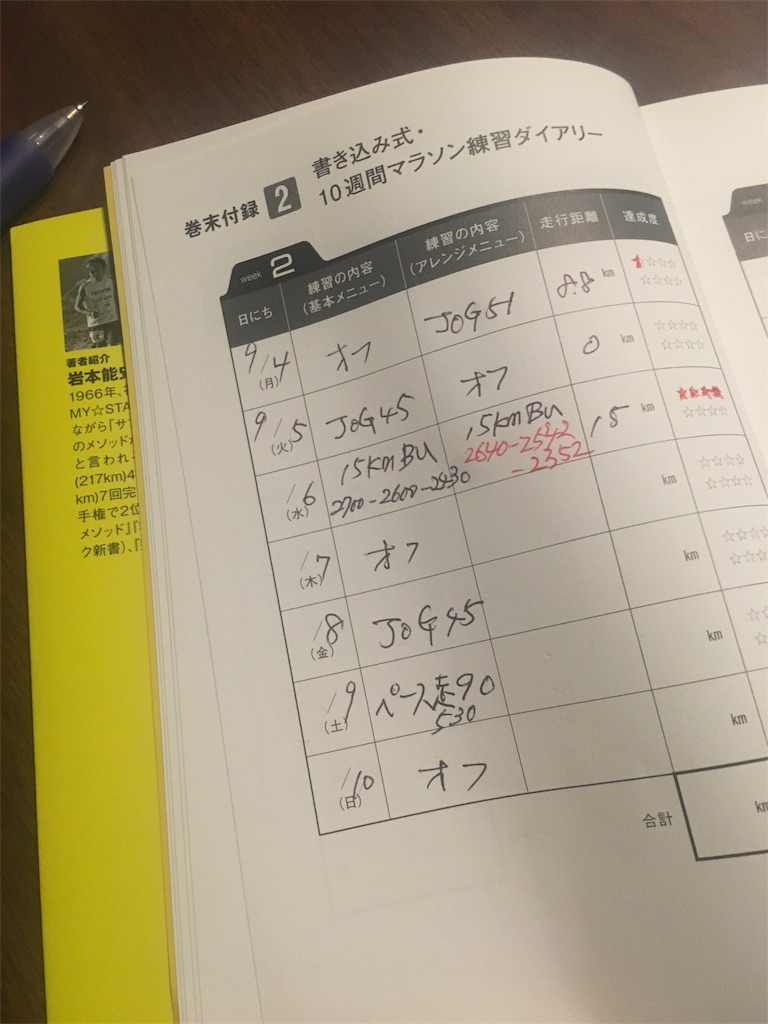 巻末付録 2
書き込み式・
10週間マラソン練習ダイアリー
week 2
日にち 練習の内容(基本メニュー) 練習の内容(アレンジメニュー) 走行距離 達成度
9/4(月) オフ JOG51 8.8 km ☆☆☆☆ ☆☆☆☆
9/5(火) JOG45 オフ 0 km ☆☆☆☆ ☆☆☆☆
/6(水) 15kmBU 15kmBU 15 km ☆☆☆☆
2700-2600-2430 2640-2542
-2352
/7(木) オフ km ☆☆☆☆ ☆☆☆☆
/8(金) JOG45 km ☆☆☆☆ ☆☆☆
/9(土) ペース走90 km ☆☆ ☆
530
/10(日) オフ km
合計 km
week
日に
著者紹介
岩本能史
1966年、
MY☆STA
ながら「サ
のメソッドが
と言われ
(217km)4
km)7回完
手権で2位
メソッド』『
ク新書)、『